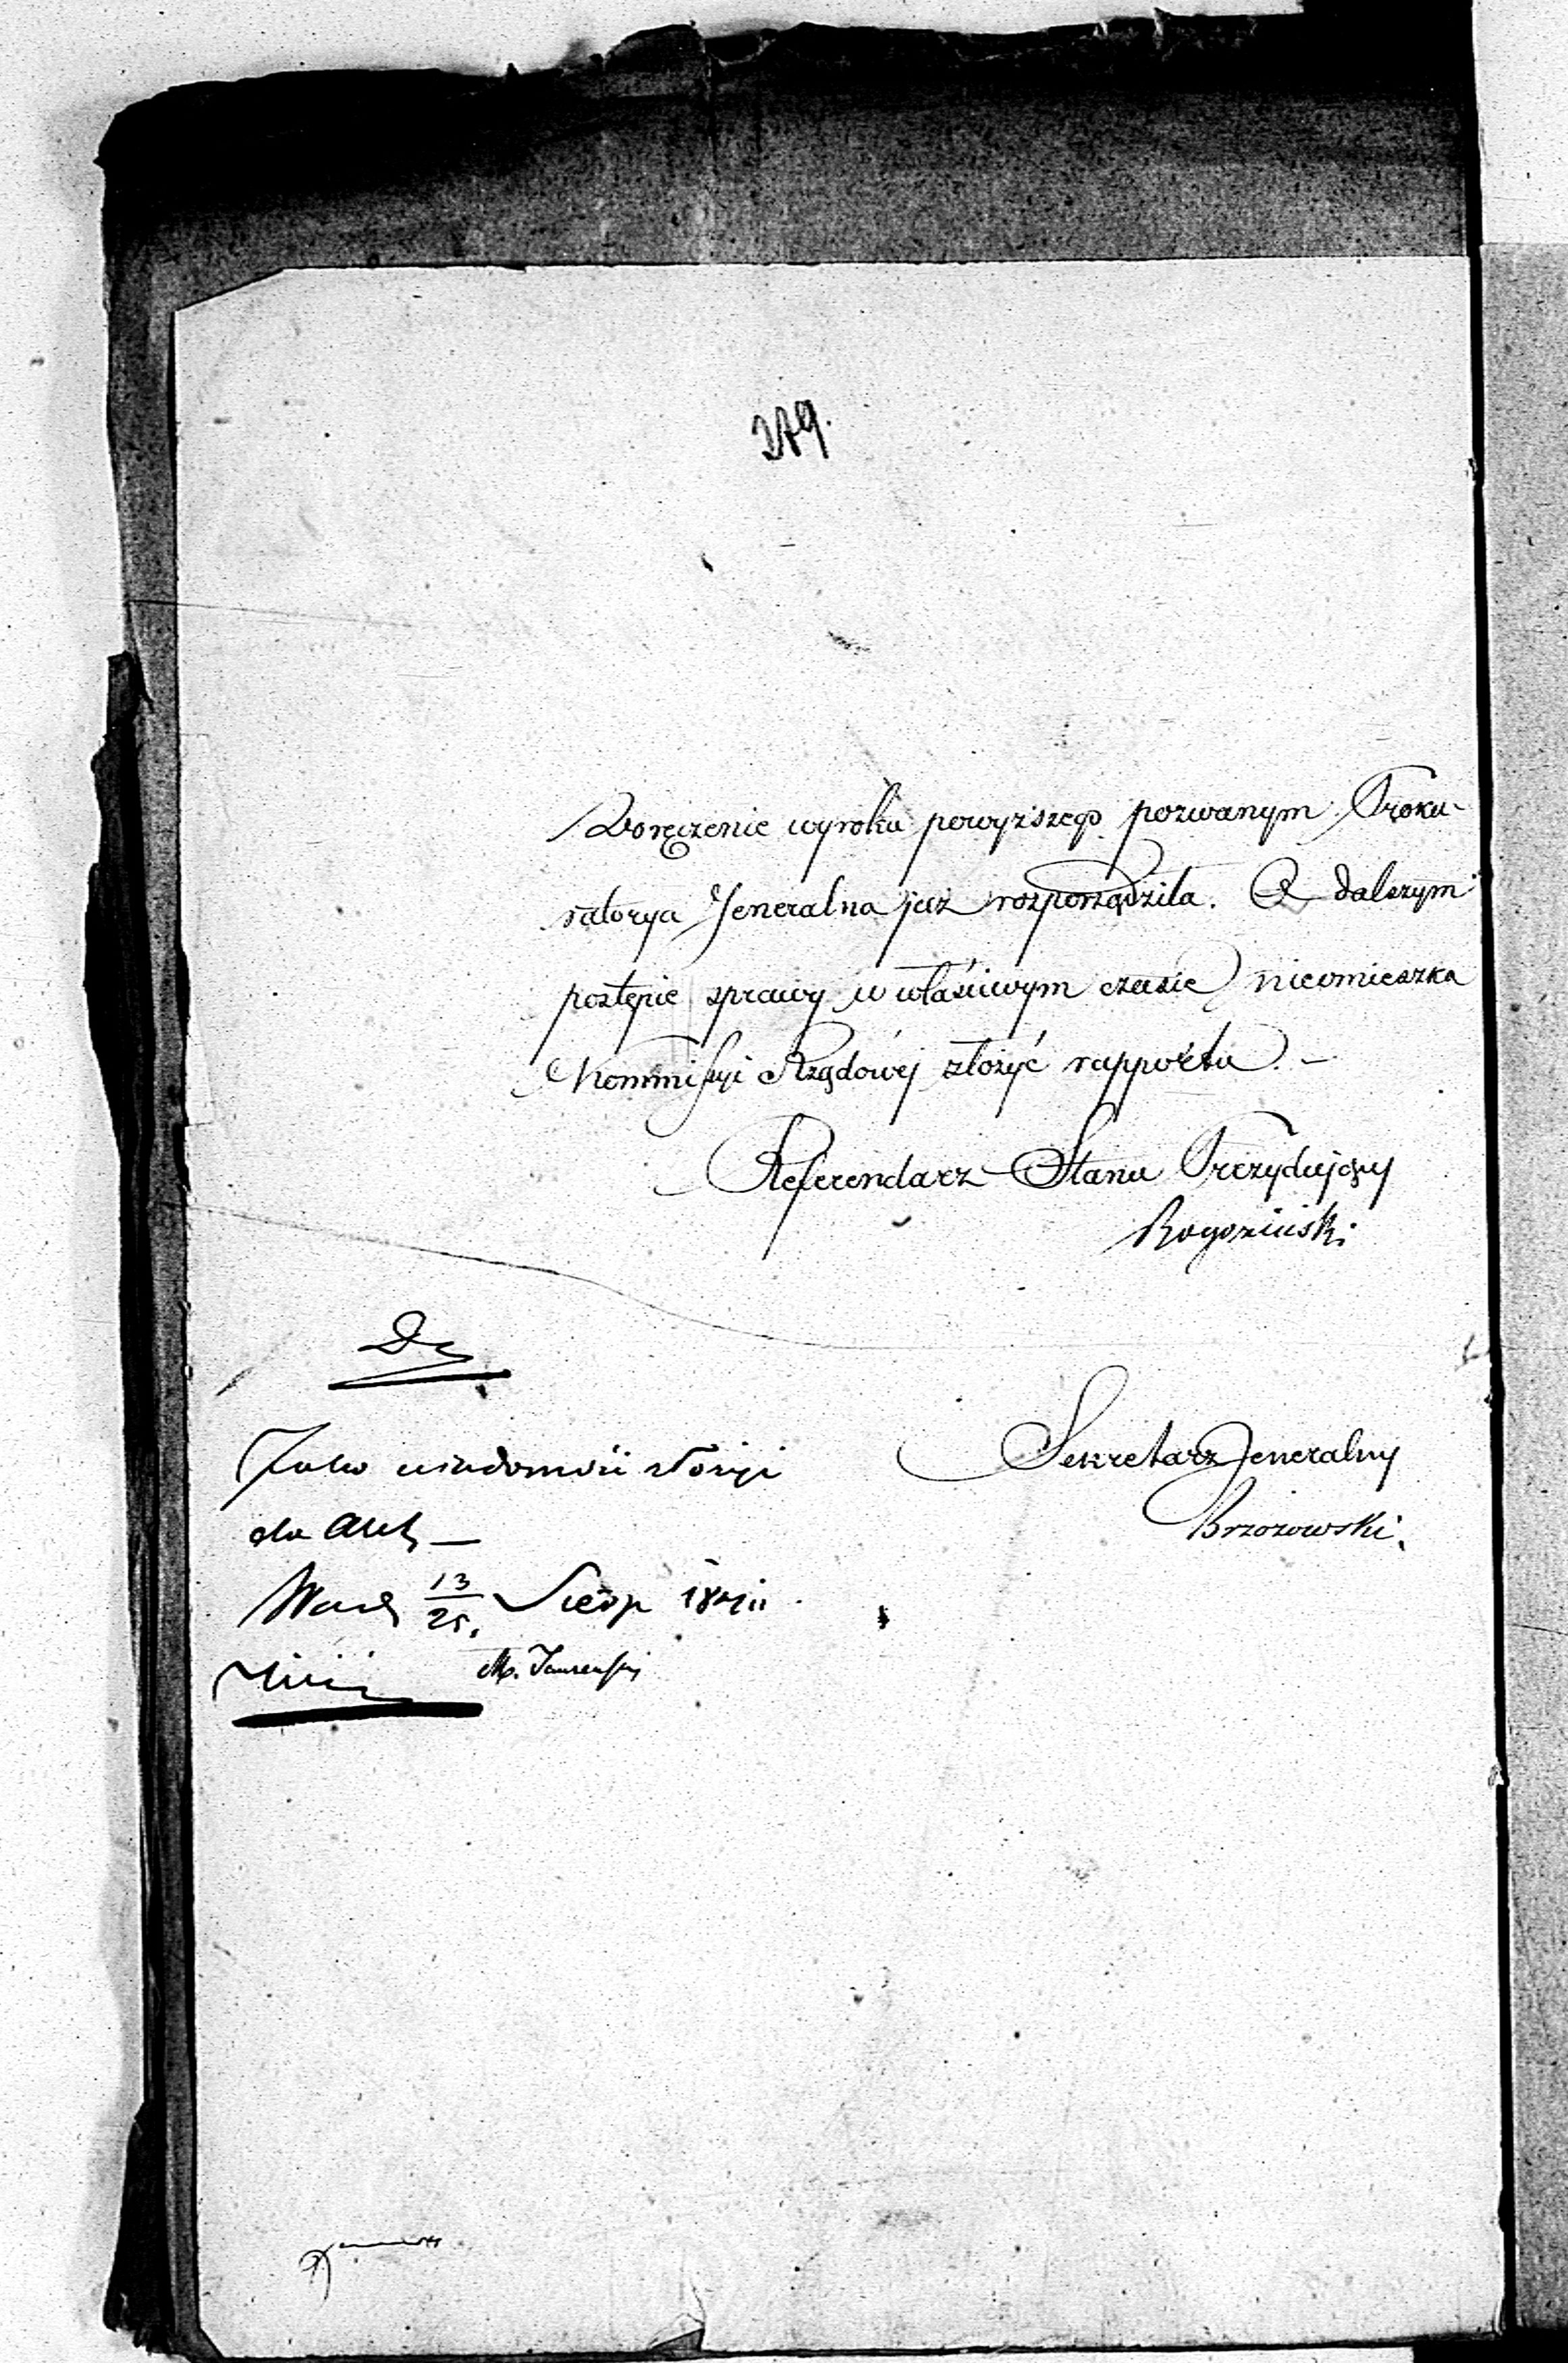 279.
Doręczenie wyroku powyższego pozwanym Proku-
ratorya Jeneralna już rozporządziła. O dalszym
postępie sprawy w właściwym czasie nieomieszka
Kommissyi Rządowej złożyć rapportu. –
Referendarz Stanu Prezydujący
Rogoziński
Sekretarz Jeneralny
Brzozowski.
Jako wiadomość złożyć
do Akt –
Warsz 13/25 Sierp